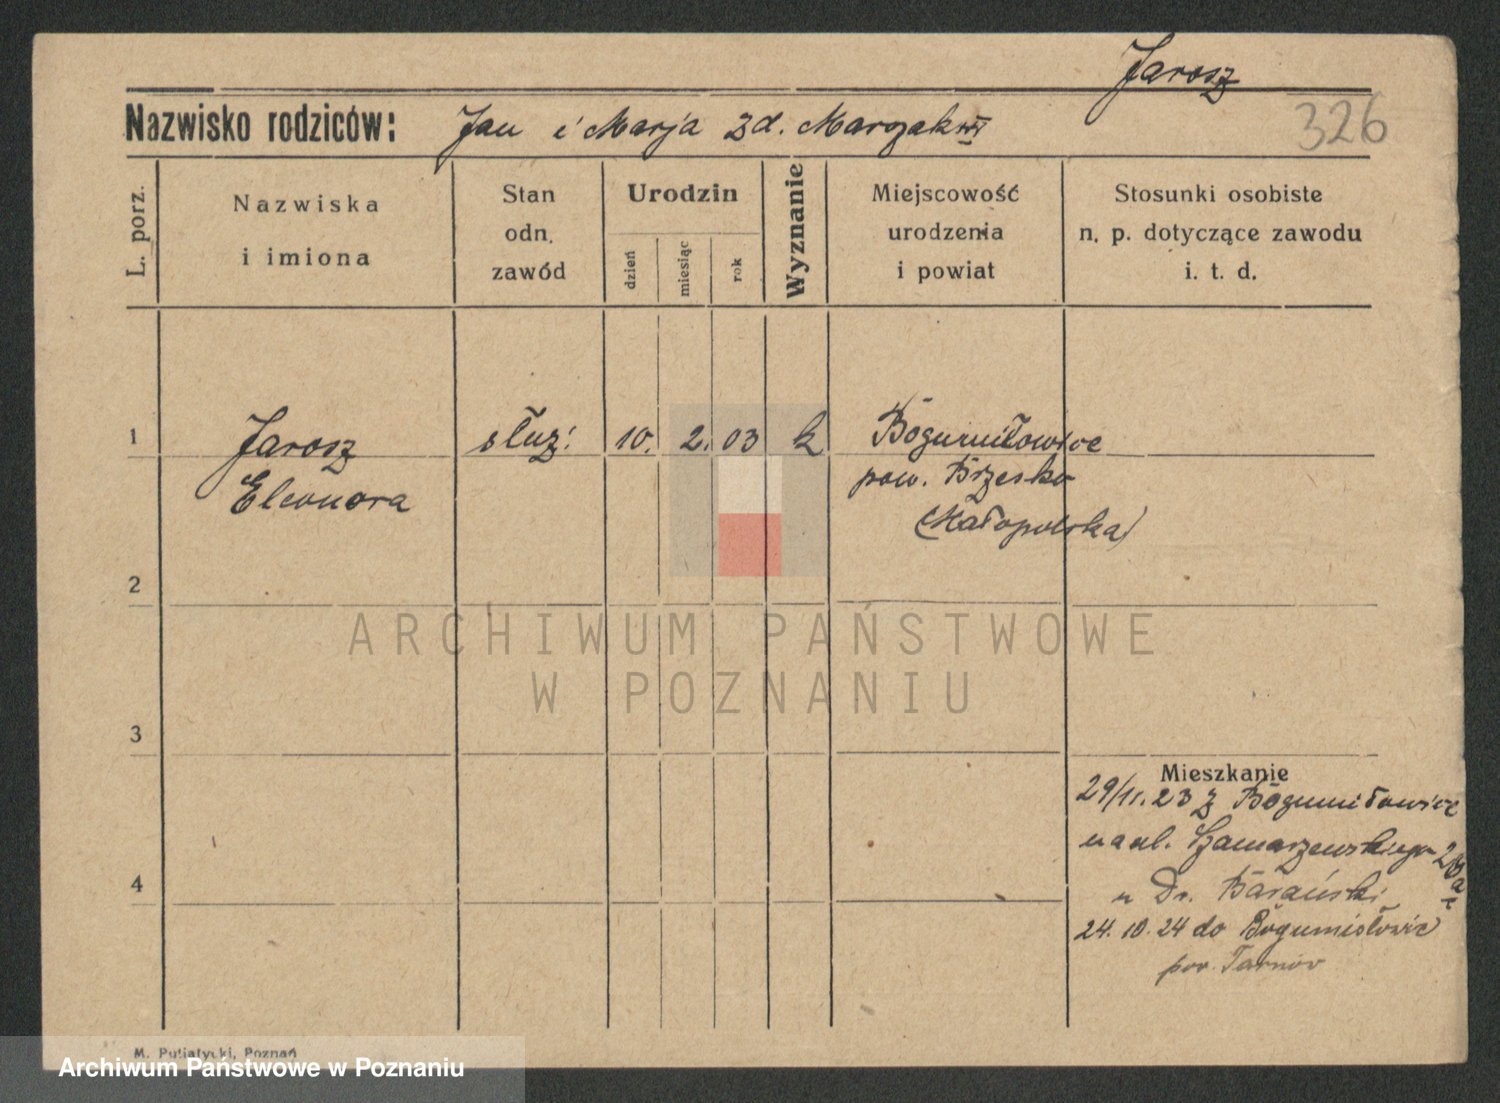 Jarosz
Nazwisko rodziców: Jan i Marja zd.
326
L. porz.
Nazwiska
i imiona
Stan
odn.
zawód
Urodzin
dzień
miesiąc
rok
Wyznanie
Miejscowość
urodzenia
i powiat
Stosunki osobiste
n. p. dotyczące zawodu
i. t. d.
1
Jarosz
Eleonora
służ.
10. 2. 03
k
Bogumiłowice
pow. Brzesko
(Małopolska)
2
3
4
Mieszkanie
29/11.23 z Bogumiłowice
na ul. Szamarzewskiego
u Dr. Barański
24.10.24 do Bogumiłowic
pow. Tarnów
ARCHIWUM PAŃSTWOWE
W POZNANIU
M. Putiatycki, Poznań
Archiwum Państwowe w Poznaniu